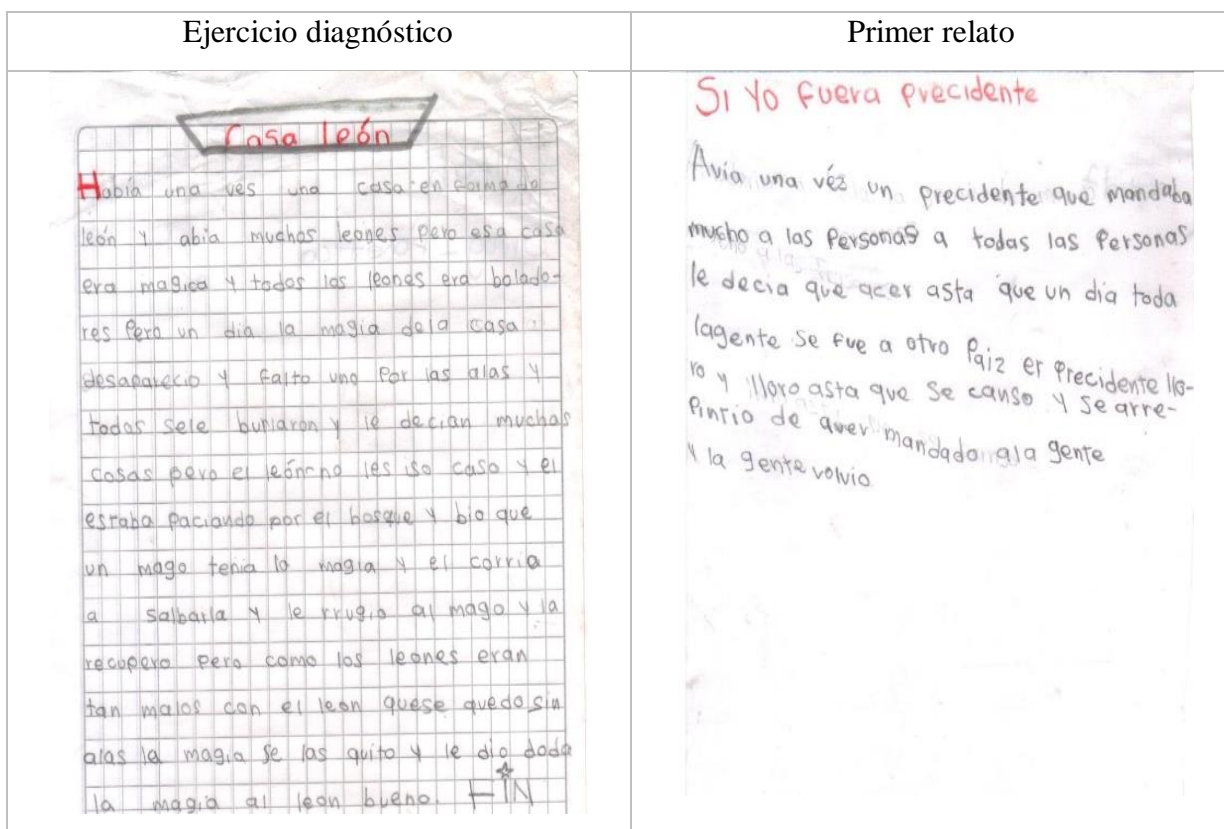 Ejercicio diagnóstico
Casa león
Había una ves una casa en forma de
león y abia muchos leones pero esa casa
era magica y todos los leones era bolado-
res pero un dia la magia dela casa
desaparecio y falto uno por las alas y
todos sele burlaron y le decian muchas
cosas pero el león no les iso caso y el
estaba paciando por el bosque y bio que
un mago tenia la magia y el corria
a salbarla y le rrugio al mago y la
recupero pero como los leones eran
tan malos con el leon quese quedo sin
alas la magia se las quito y le dio doda
la magia al leon bueno. FIN
Primer relato
Si Yo Fuera Precidente
Avia una véz un precidente que mandaba
mucho a las Personas a todas las Personas
le decia que acer asta que un dia toda
lagente se fue a otro Paiz er Precidente llo-
ro y lloro asta que se canso y se arre-
Pintio de aver mandado ala gente
y la gente volvio